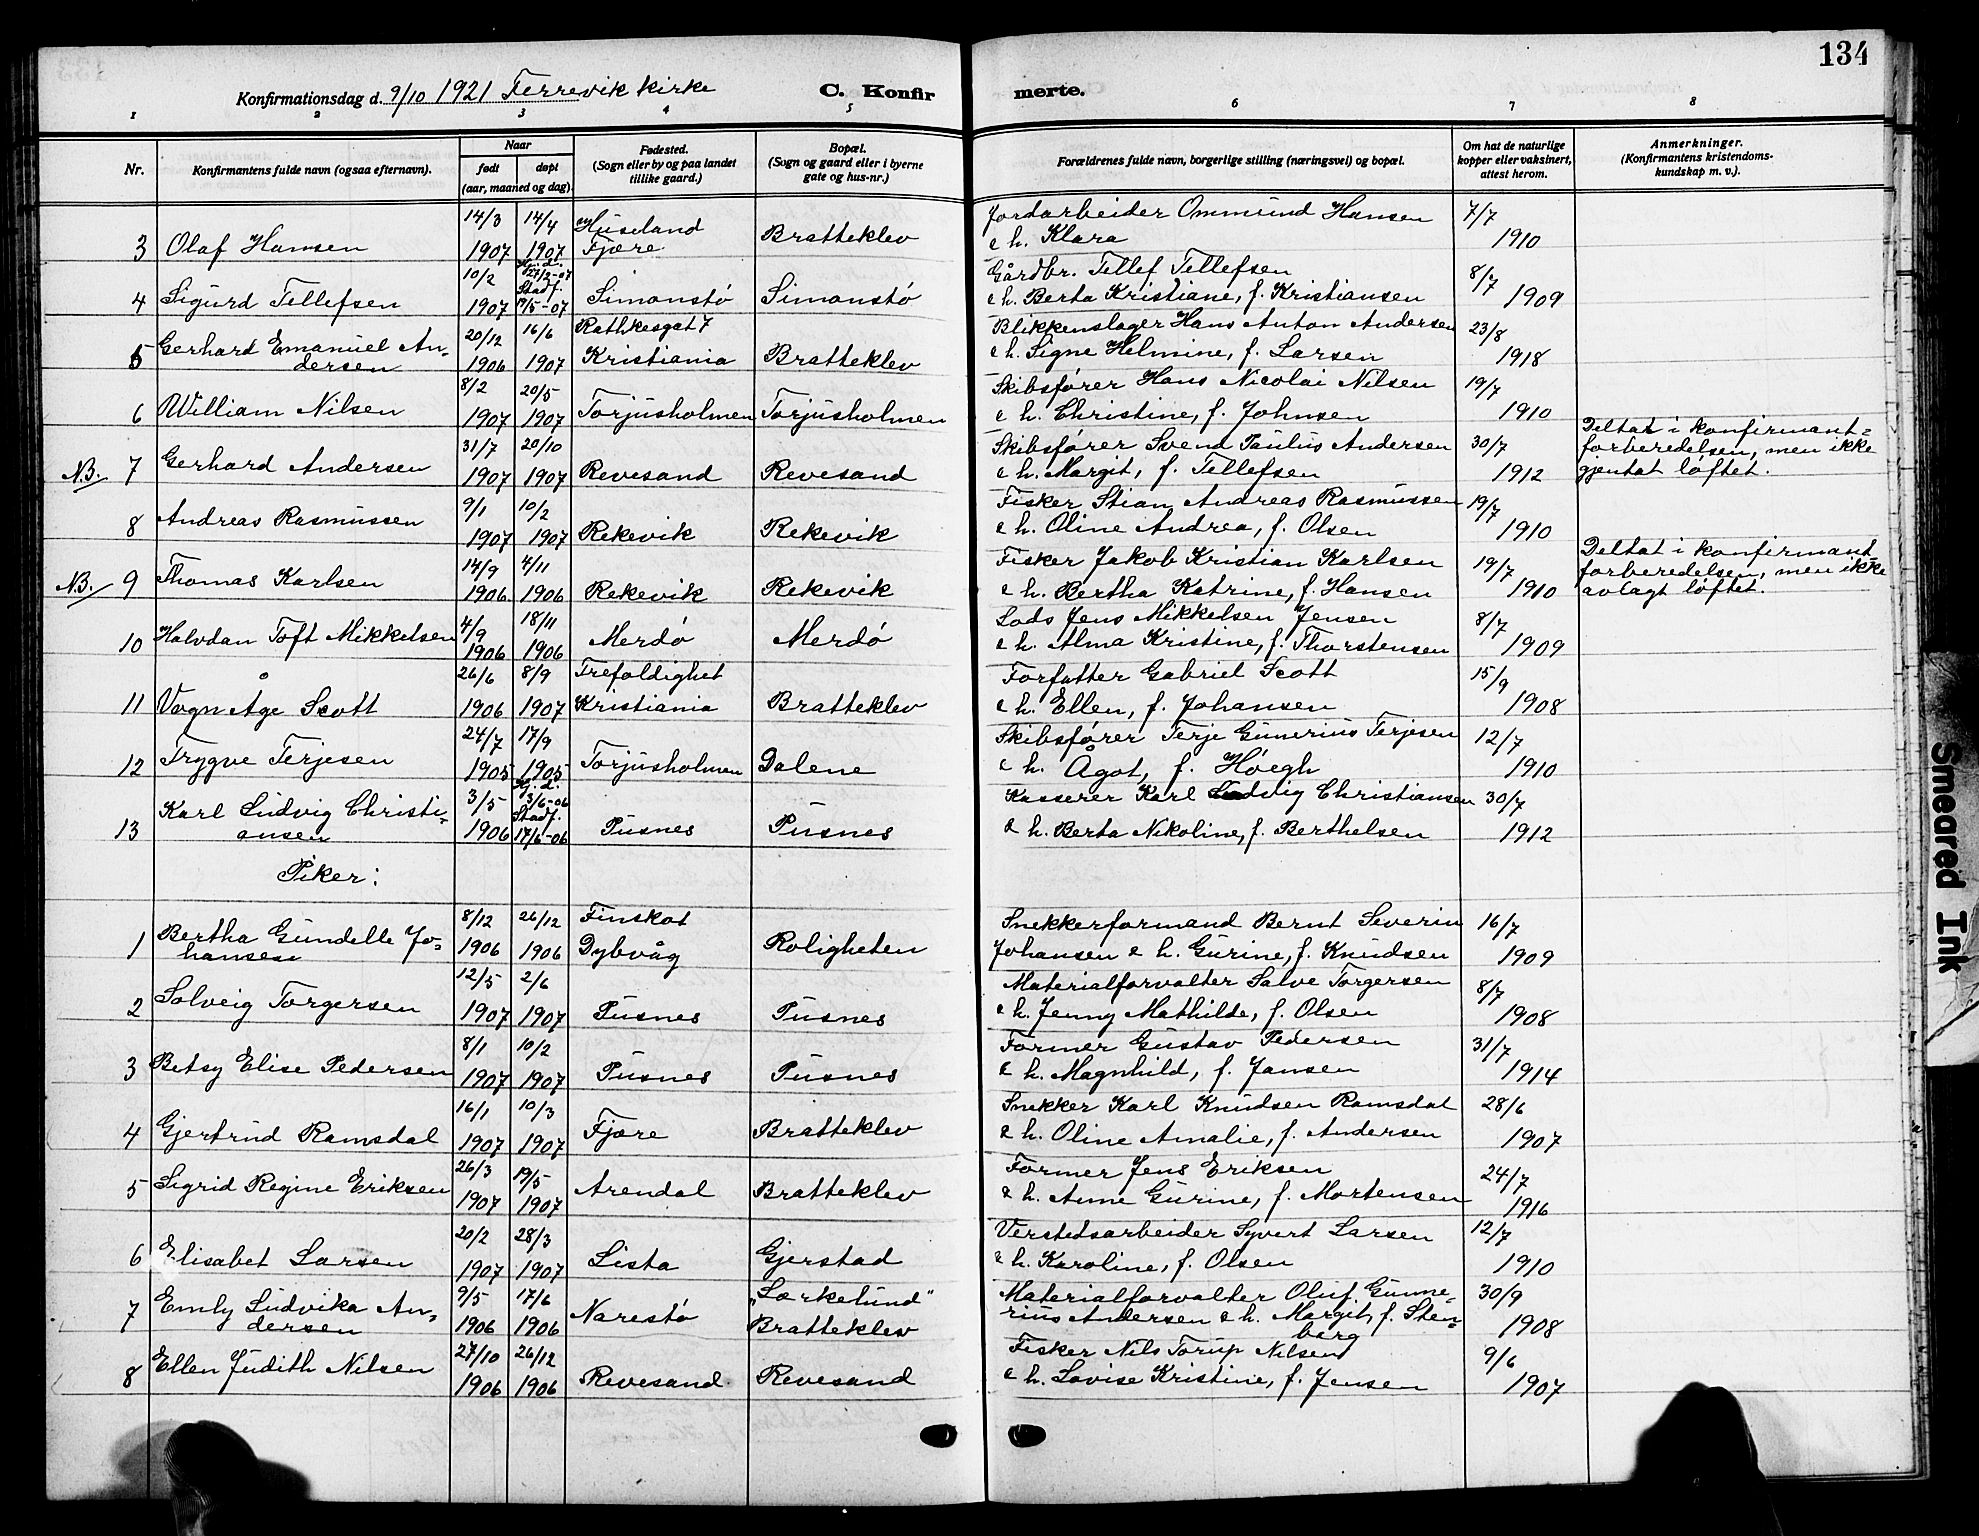 134
Konfirmationsdag d. 9/10 1921 Færvik kirke C. Konfir merte.
1 2 3 4 5 6 7 8
Nr. Konfirmantens fulde navn (ogsaa efternavn). Naar født døpt (aar, maaned og dag). Fødested. (Sogn eller by og paa landet tillike gaard.) Bopæl. (Sogn og gaard eller i byerne gate og hus-nr.) Forældrenes fulde navn, borgerlige stilling (næringsvei) og bopæl. Om hat de naturlige kopper eller vaksinert, attest herom. Anmerkninger. (Konfirmantens kristendoms-kundskap m. v.).
14/3 14/4 Huseland Jordarbeider Ommund Hansen 7/7
3 Olaf Hansen 1907 1907 Fjære Bratteklev & h. Klara 1910
10/2 Hj. d. 27/2-07 Stadf. Gårdbr. Tellef Tellefsen 8/7
4 Sigurd Tellefsen 1907 19/5-07 Simonstø Simonstø & h. Berta Kristiane, f. Kristiansen 1909
20/12 16/6 Rathkesgat 7 Blikkenslager Hans Anton Andersen 23/8
5 Gerhard Emanuel An-dersen 1906 1907 Kristiania Bratteklev & h. Signe Helmine, f. Larsen 1918
8/2 20/5 Skibsfører Hans Nicolai Nilsen 19/7
6 William Nilsen 1907 1907 Torjusholmen Torjusholmen & h. Christine, f. Johnsen 1910
31/7 20/10 Skibsfører Svend Paulus Andersen 30/7 Deltat i konfirmant-forberedelsen, men ikke
N.B. 7 Gerhard Andersen 1907 1907 Revesand Revesand & h. Margit, f. Tellefsen 1912 gjentat løftet.
9/1 10/2 Fisker Stian Andreas Rasmussen 19/7
8 Andreas Rasmussen 1907 1907 Rekevik Rekevik & h. Oline Andrea, f. Olsen 1910
14/9 4/11 Fisker Jakob Kristian Karlsen 19/7 Deltat i konfirmant-forberedelsen, men ikke
N.B. 9 Thomas Karlsen 1906 1906 Rekevik Rekevik & h. Bertha Katrine, f. Hansen 1910 avlagt løftet.
4/9 18/11 Lods Jens Mikkelsen Jensen 8/7
10 Halvdan Toft Mikkelsen 1906 1906 Merdø Merdø & h. Alma Kristine, f. Thorstensen 1909
26/6 8/9 Trefoldighet Forfatter Gabriel Scott 15/9
11 Vogn Åge Scott 1906 1907 Kristiania Bratteklev & h. Ellen, f. Johansen 1908
24/7 17/9 Skibsfører Terje Gunerius Terjesen 12/7
12 Trygve Terjesen 1905 1905 Torjusholmen Dalene & h. Ågot, f. Høegh 1910
3/5 Hj. d. 3/6-06 Stadf. Kasserer Karl Ludvig Christiansen 30/7
13 Karl Ludvig Christi-ansen 1906 17/6-06 Pusnes Pusnes & h. Berta Nikoline, f. Berthelsen 1912
Piker:
8/12 26/12 Finskot Snekkerformand Bernt Severin 16/7
1 Bertha Gundelle Jo-hansen 1906 1906 Dybvåg Roligheten Johansen & h. Gurine, f. Knudsen 1909
12/5 2/6 Materialforvalter Salve Torgersen 8/7
2 Solveig Torgersen 1907 1907 Pusnes Pusnes & h. Jenny Mathilde, f. Olsen 1908
8/1 10/2 Former Gustav Pedersen 31/7
3 Betsy Elise Pedersen 1907 1907 Pusnes Pusnes & h. Magnhild, f. Jansen 1914
16/1 10/3 Snekker Karl Knudsen Ramsdal 28/6
4 Gjertrud Ramsdal 1907 1907 Fjære Bratteklev & h. Oline Amalie, f. Andersen 1907
26/3 19/5 Former Jens Eriksen 24/7
5 Sigrid Regine Eriksen 1907 1907 Arendal Bratteklev & h. Anne Gurine, f. Mortensen 1916
20/2 28/3 Verstedsarbeider Syvert Larsen 12/7
6 Elisabet Larsen 1907 1907 Lista Gjerstad & h. Karoline, f. Olsen 1910
9/5 17/6 „Lærkelund" Materialforvalter Oluf Gunne- 30/9
7 Emly Ludvika An-dersen 1906 1906 Narestø Bratteklev rius Andersen & h. Margit, f. Sten-berg 1908
27/10 26/12 Fisker Nils Torup Nilsen 9/6
8 Ellen Judith Nilsen 1906 1906 Revesand Revesand & h. Lovise Kristine, f. Jensen 1907
Smeared Ink